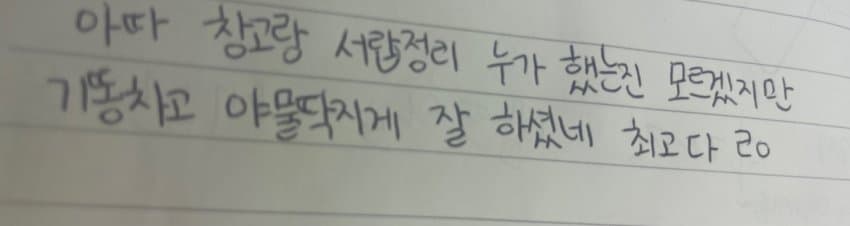 아따 창고랑 서랍정리 누가 했는진 모르겠지만
기똥차고 야물딱지게 잘 하셨네 최고다 ㄹㅇ